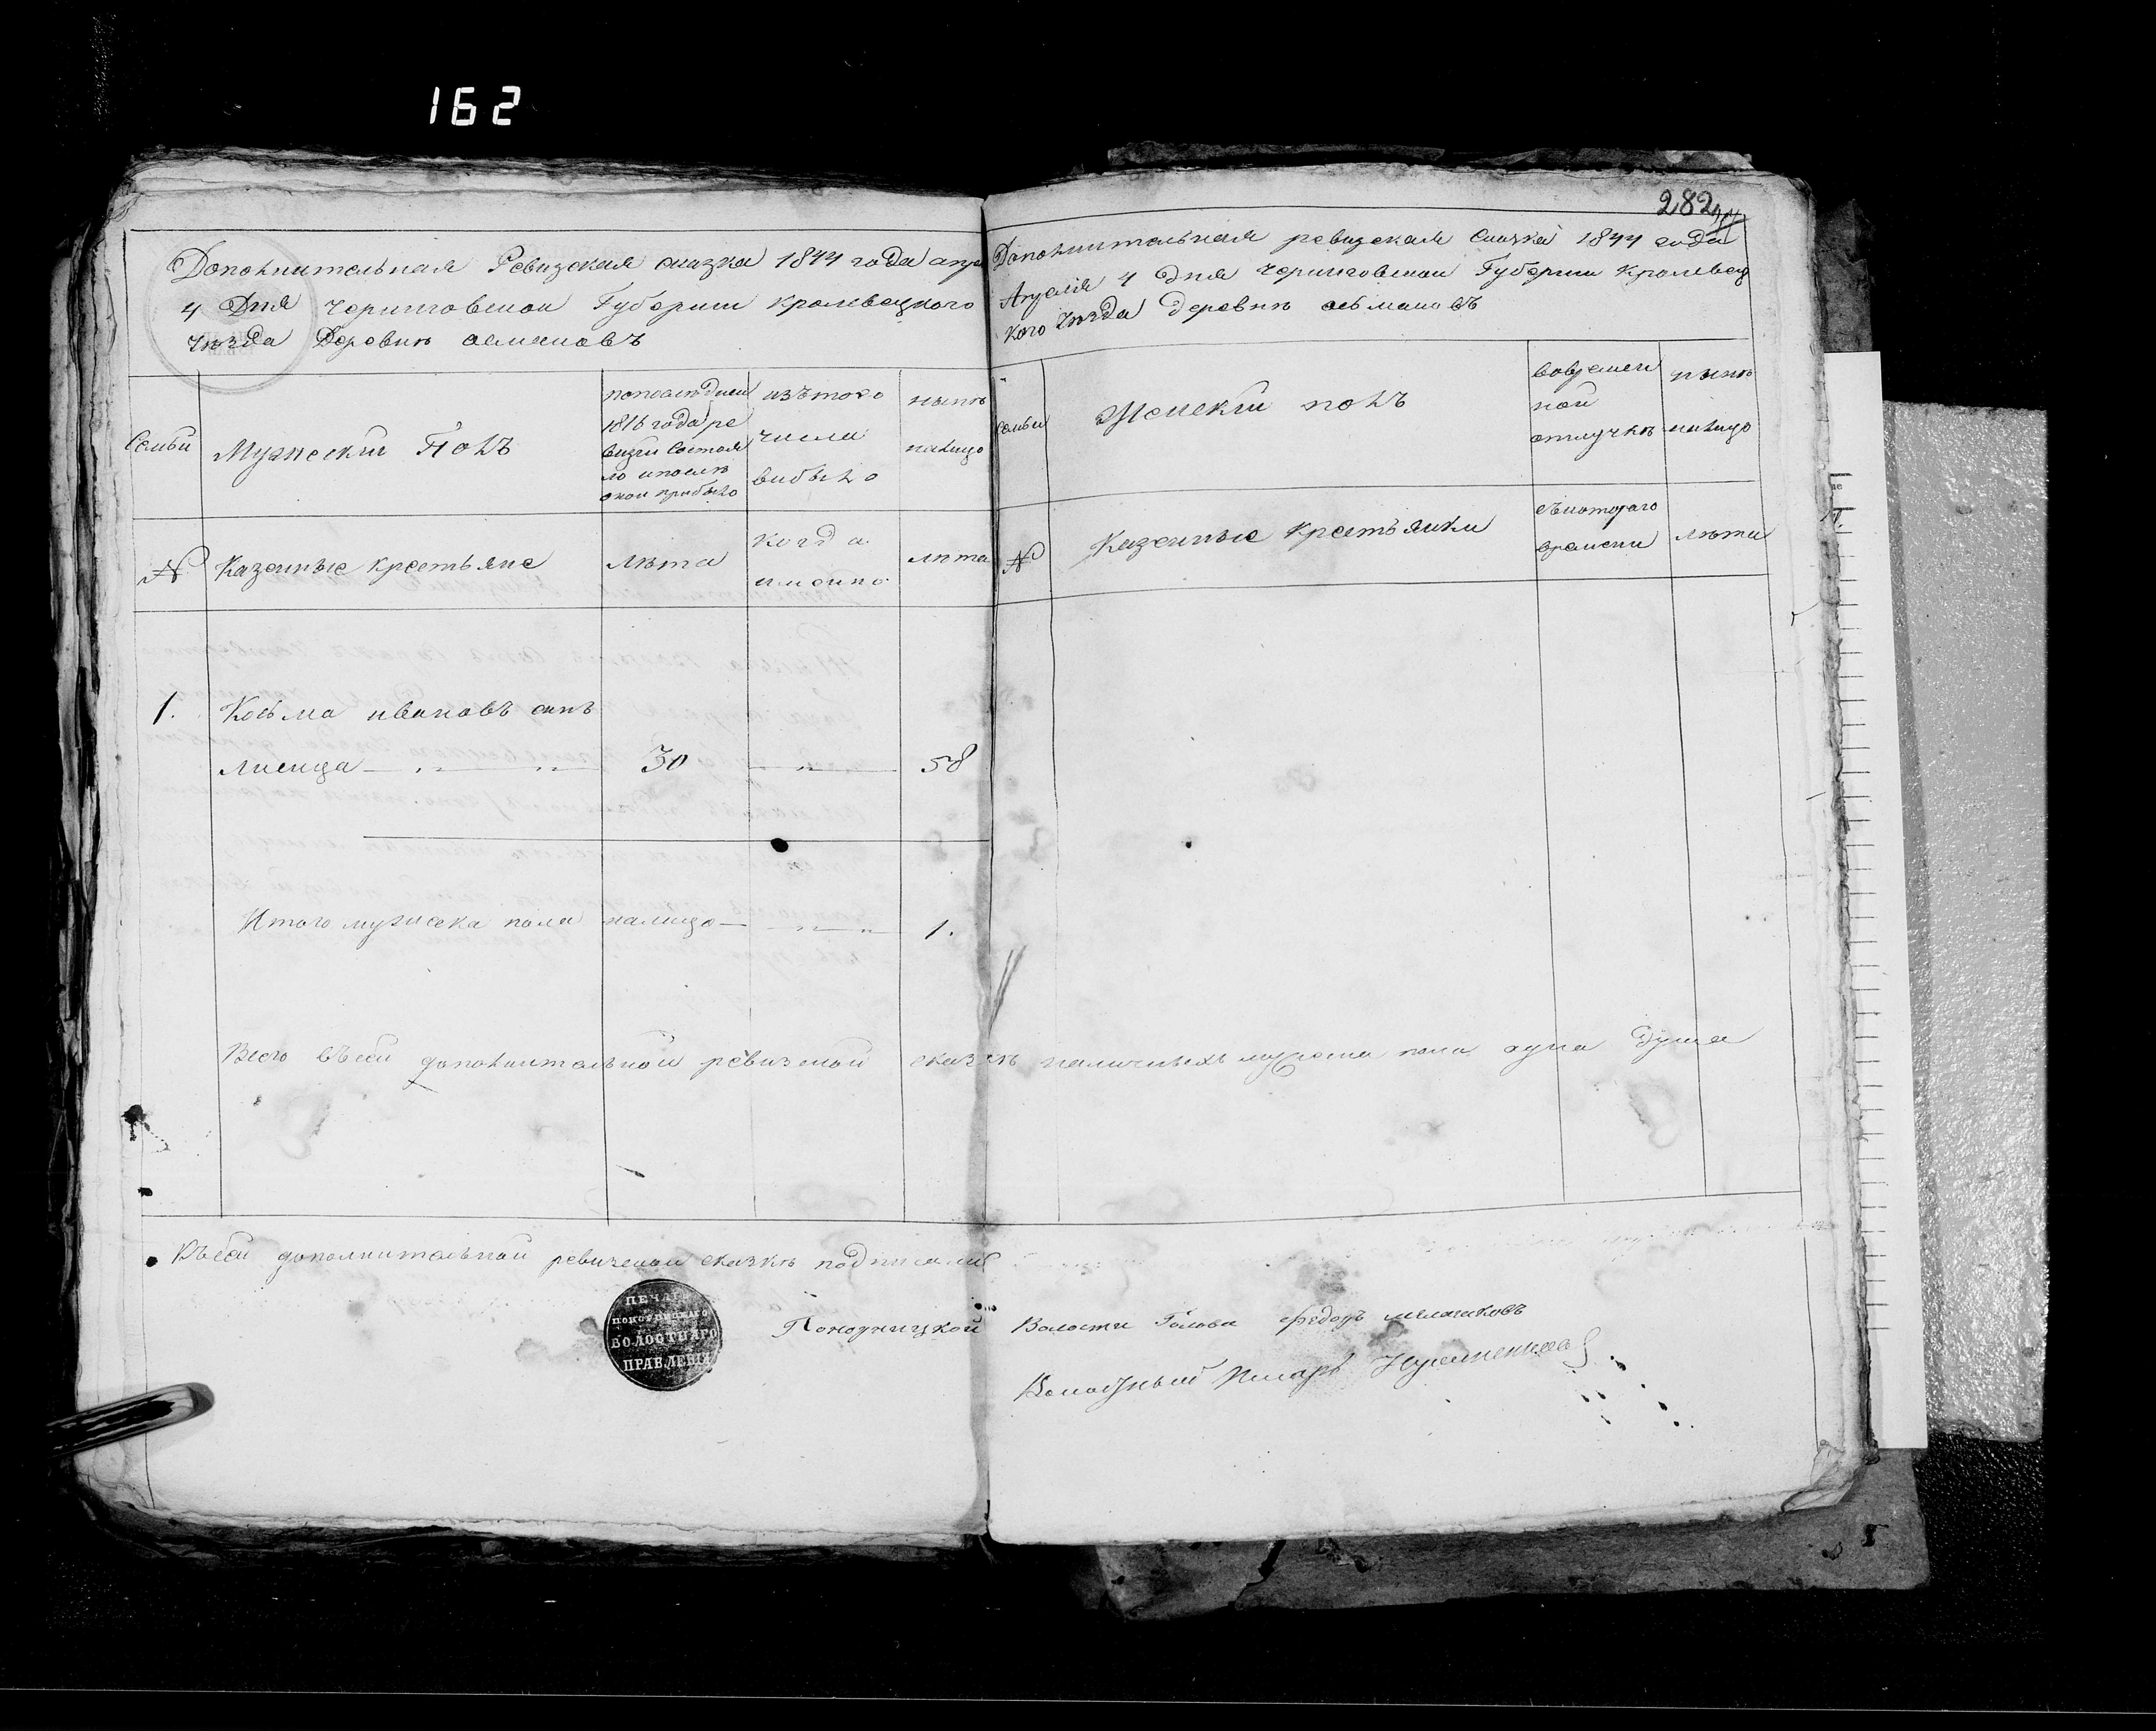 162
282
Дополнительная Ревизская сказка 1844 года апре
4 Дня Черниговской Губернии Кролевецкого
уезда Деревни
Семьи
Мужескій Полъ
попоследней
1816 года ре
визіи состоя
ло и после
оной прибыло
изътого
числа
выбыло
ныне
налицо
№
Казенные крестьяне
лета
когда
именно
лета
1.
Козьма ивановъ сынъ
Лисица 30 58
Итого мужеска пола налицо 1.
Дополнительная ревизская сказка 1844 года
Апреля 4 Дня Черниговской Губерніи Кролевец
кого уезда деревни
семьи
Женскій полъ
вовремен
ной
отлучке
ныне
налицо
№
Казенные крестьянки
съкотораго
времени
лета
Всего въсей дополнительной ревизской сказке наличныхъ мужеска пола одна Душа
Късей дополнительной ревизской сказке подписали
ПЕЧАТЬ
ВОЛОСТНАГО
ПРАВЛЕНІЯ
Волости Голова федоръ
Волостный Писарь